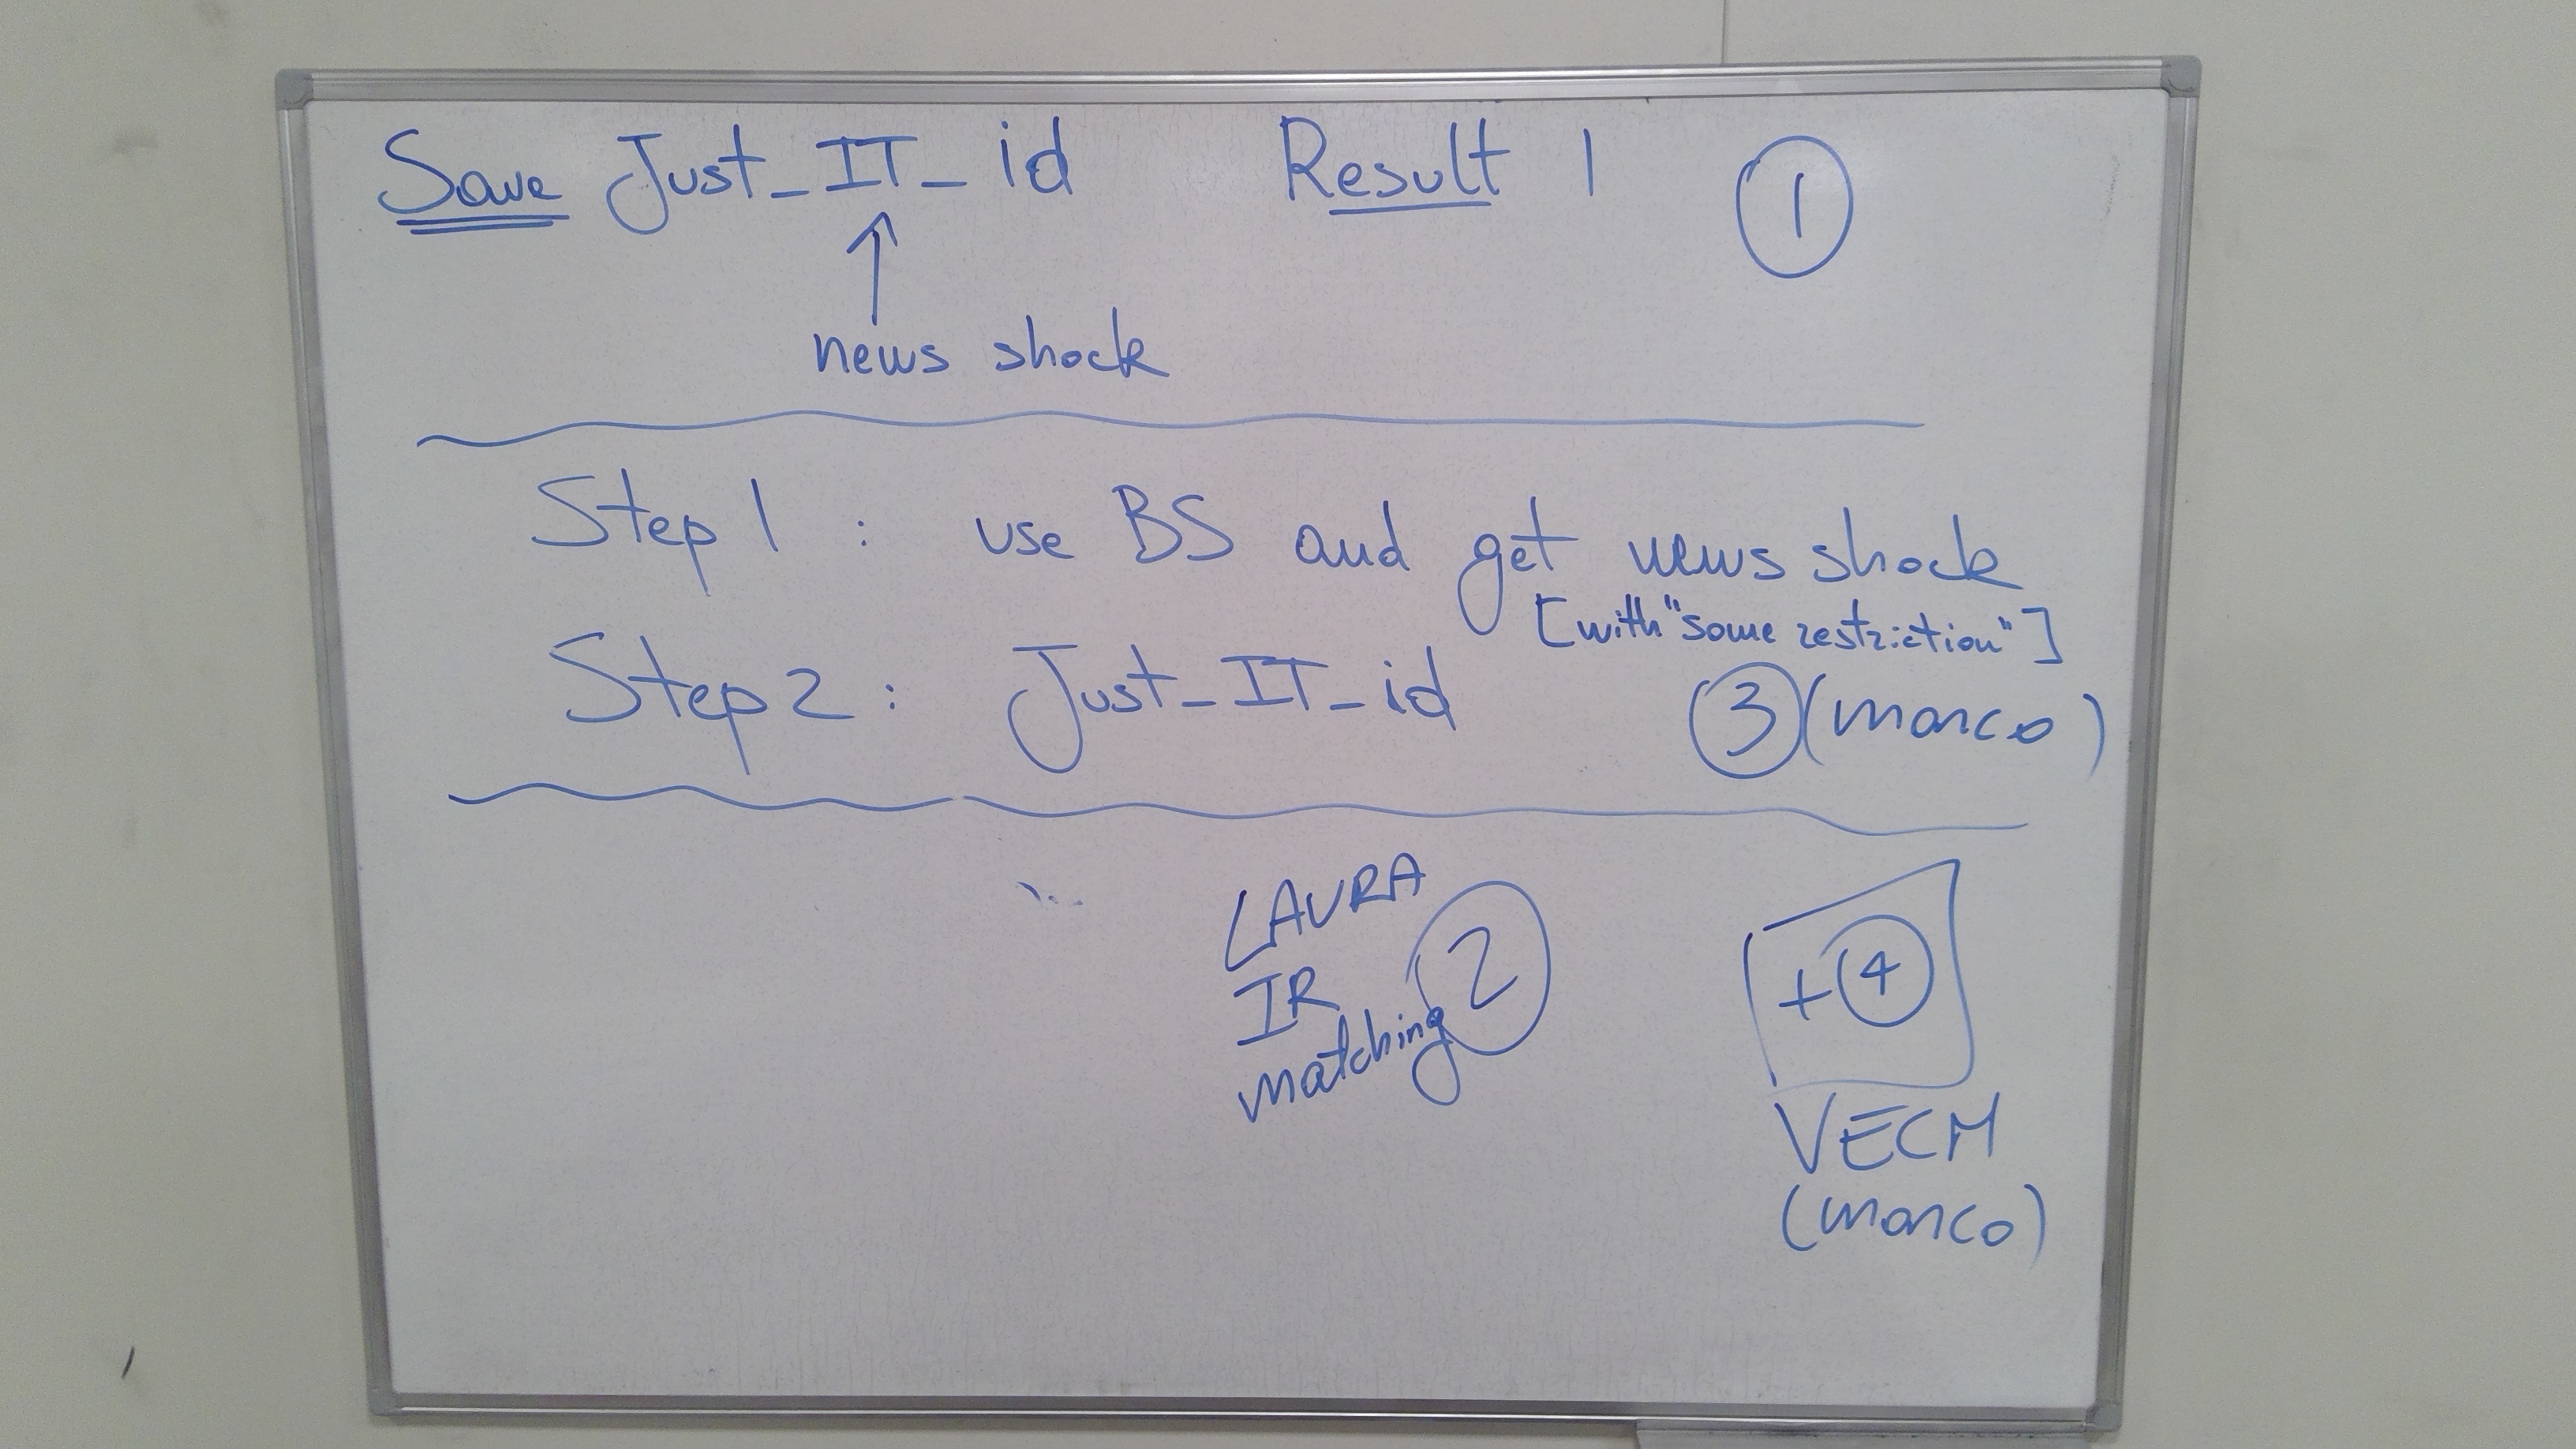 Save Just_IT_id Result 1 1
news shock
Step 1 : use BS and get news shock
[with "some restriction"]
Step 2 : Just_IT_id 3 (marco)
LAURA
IR
matching 2
+ 4
VECM
(marco)